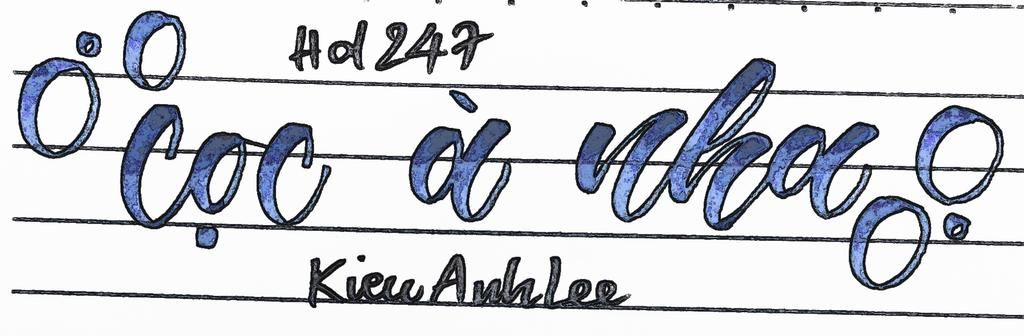 Hd 247
cọc à nha
Kieu Anh Lee